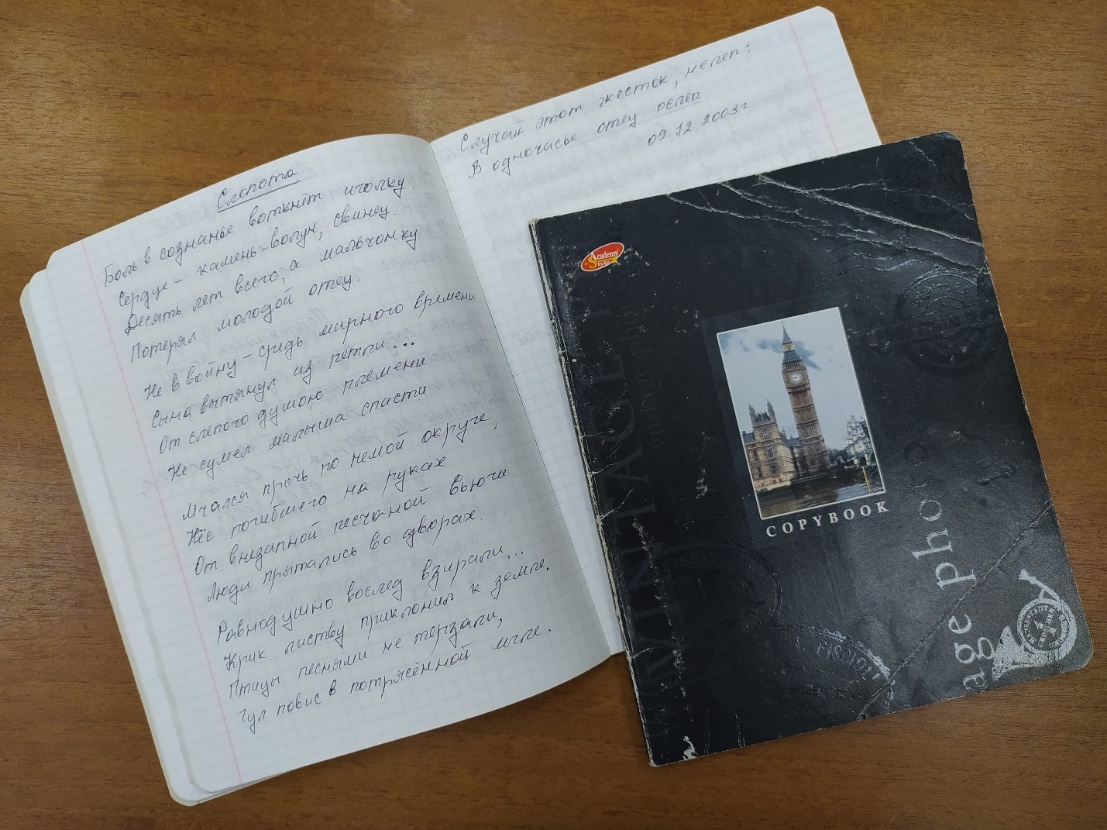 Слепота
Боль в сознанье воткнёт иголку
Сердце - камень-валун, свинец.
Десять лет всего, а мальчонку
Потерял молодой отец.
Не в войну - средь мирного времени
Сына вытянул из петли...
От слепого душою племени
Не сумел малыша спасти
Мчался прочь по немой округе,
Нёс погибшего на руках
От внезапной песчаной вьюги
Люди прятались во дворах.
Равнодушно вослед взирали...
Крик листву приклонил к земле.
Птицы песнями не терзали,
Гул повис в потрясённой мгле.
Случай этот жесток, нелеп:
В одночасье отец ослеп.
09.12.2003г
Academy Style
VINTAGE
COPYBOOK
age photo